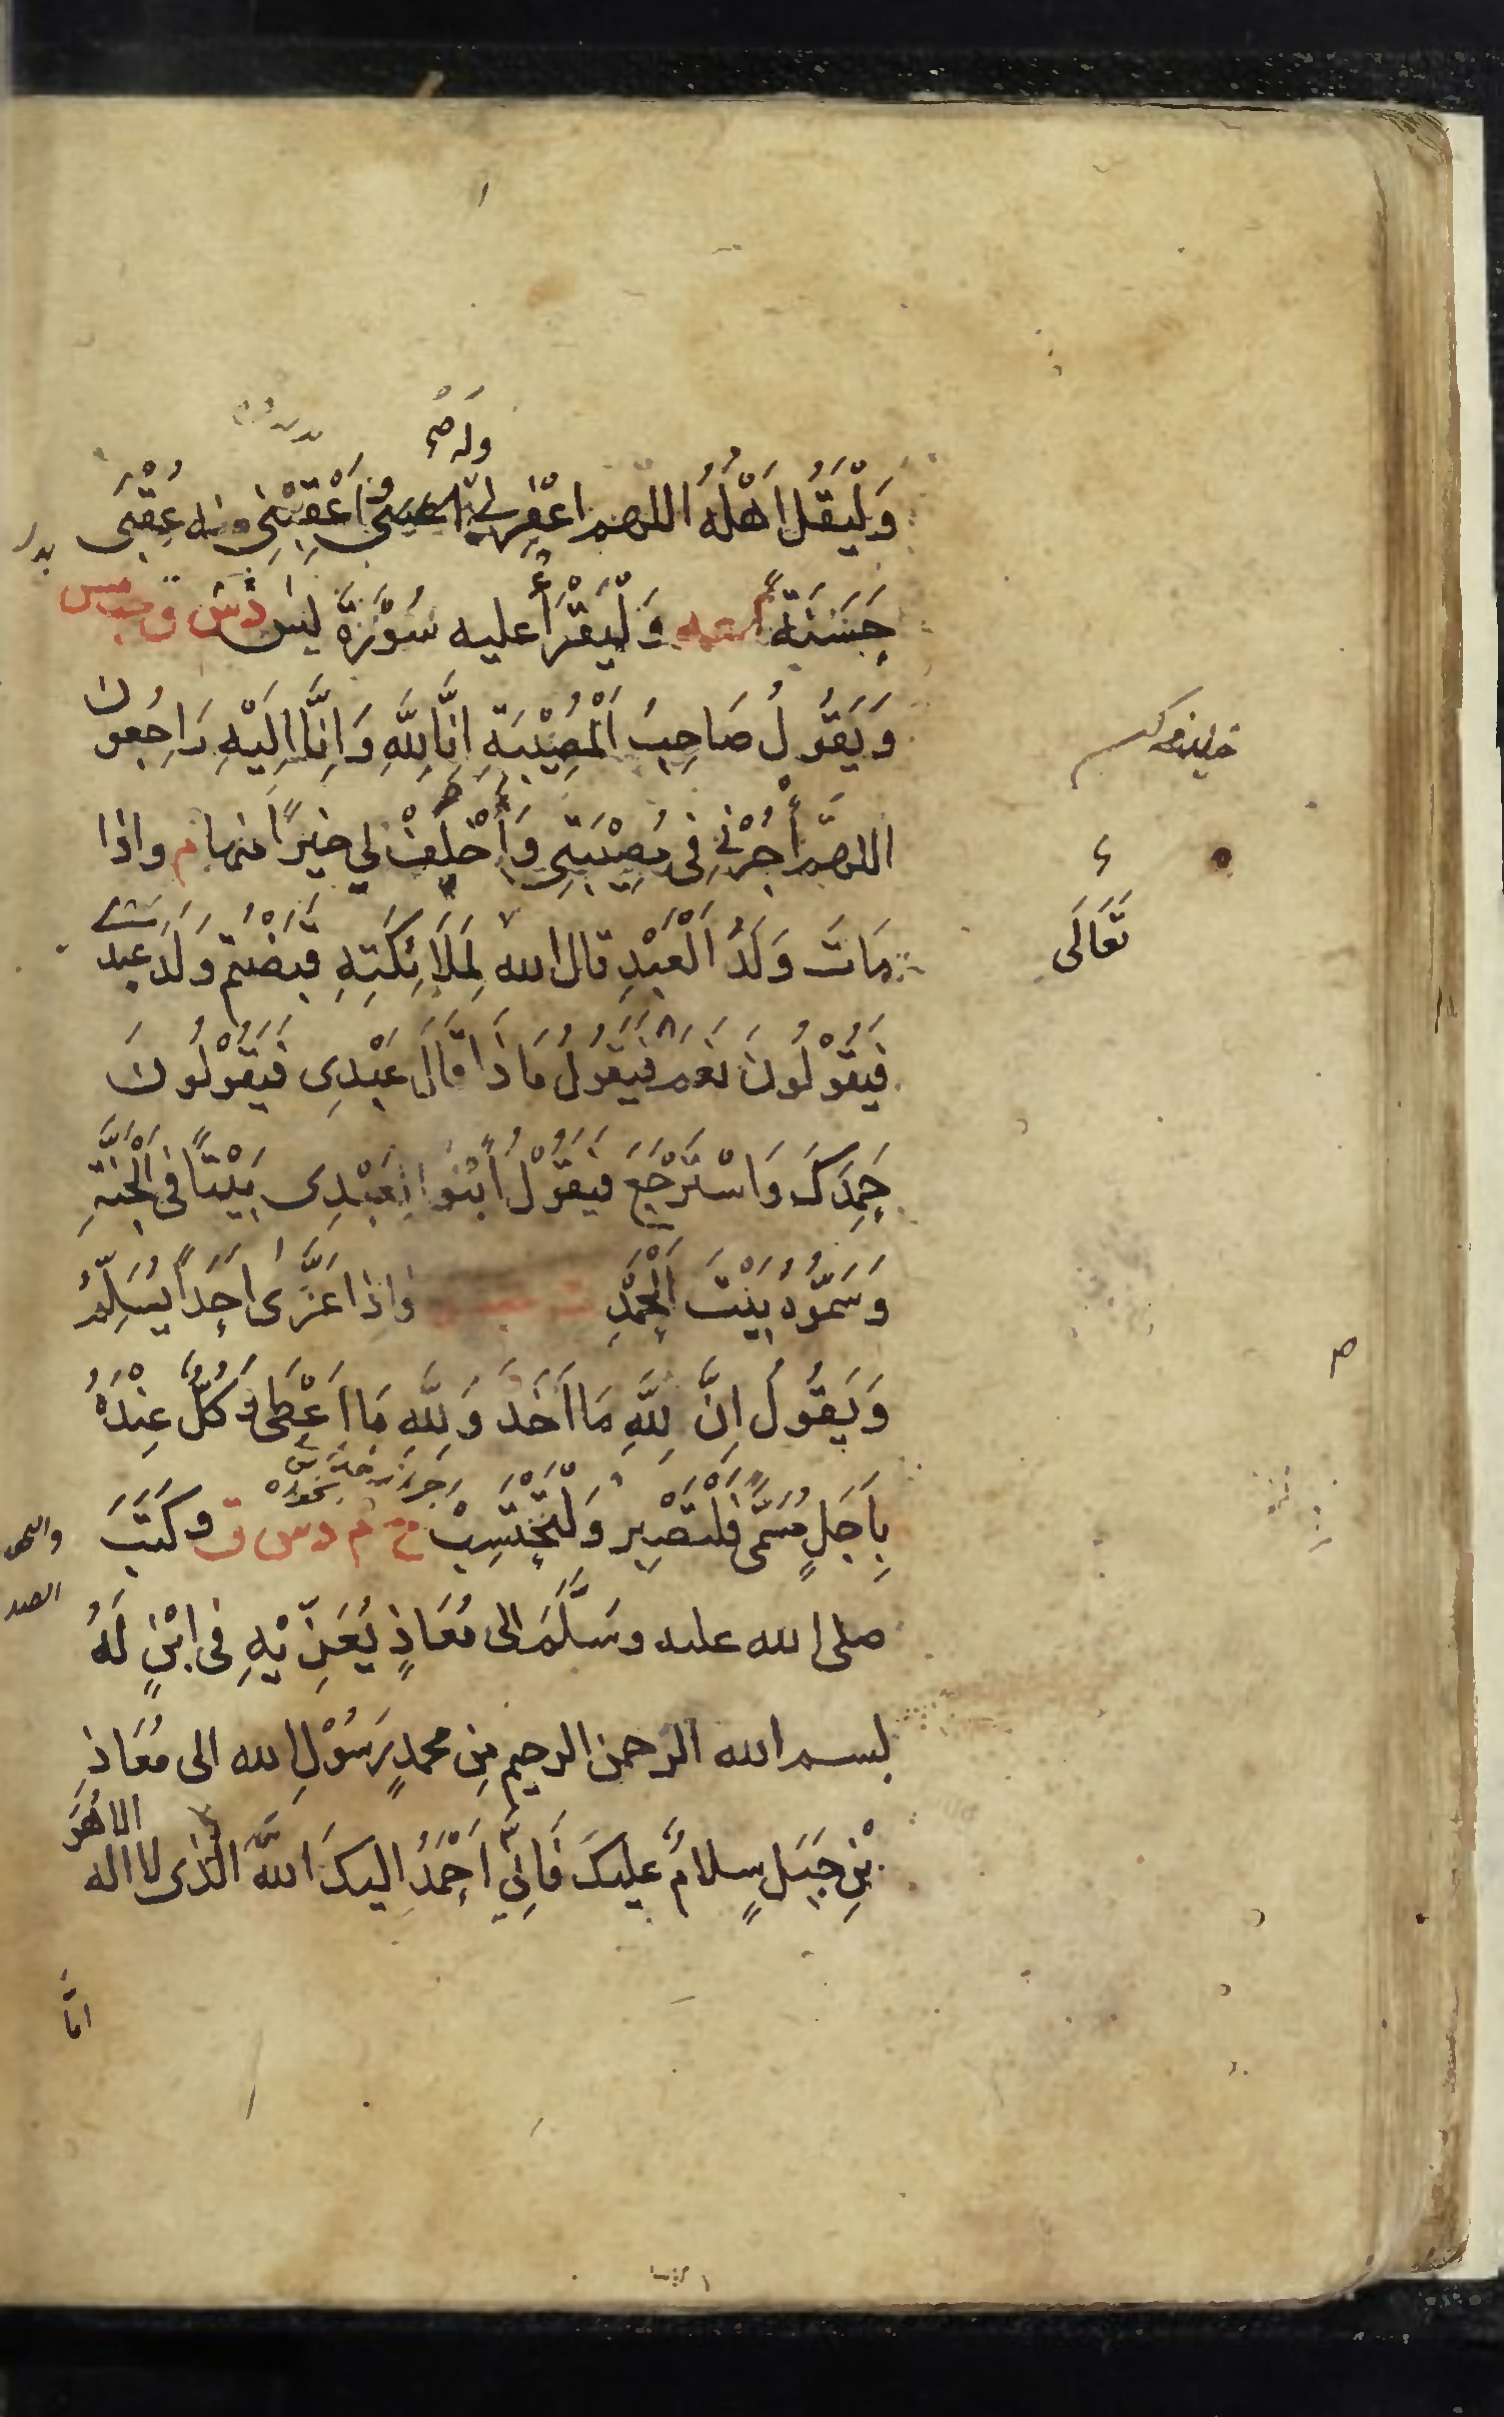 وله
وَلْيَقُلْ اَهْلُهُ اللهم اغْفِرْ لي وله وَاَعْقِبْنِي منه عُقْبَى
حَسَنَةً م عه وَلْيَقْرَأْ عليه سُوْرَةَ يس د س ق حب مس
وَيَقُولُ صَاحِبُ الْمُصِيْبَةِ اِنَّا لِلّٰهِ وَاِنَّا اِلَيْهِ رَاجِعُونَ
اللهمَّ أْجُرْنِي فِي مُصِيْبَتِي وَاَخْلِفْ لِي خَيْرًا منها م واذا
مَاتَ وَلَدُ الْعَبْدِ قال الله لِمَلَائِكَتِهِ قَبَضْتُمْ وَلَدَ عبدي
تَعَالَى
فَيَقُوْلُونَ نَعَمْ فَيَقُولُ مَاذَا قَالَ عَبْدِي فَيَقُوْلُونَ
حَمِدَكَ وَاسْتَرْجَعَ فَيَقُوْلُ ابْنُوا لِعَبْدِي بَيْتًا فِي الْجَنَّةِ
وَسَمُّوْهُ بَيْتَ الْحَمْدِ واذا عَزَّى اَحَدًا يُسَلِّمُ
وَيَقُولُ اِنَّ لِلّٰهِ مَا اَخَذَ وَلِلّٰهِ مَا اَعْطَى وَكُلٌّ عِنْدَهُ
بِاَجَلٍ مُسَمًّى فَلْتَصْبِرْ وَلْتَحْتَسِبْ خ م د س ق وكَتَبَ
صلى الله عليه وسَلَّمَ الى مُعَاذٍ يُعَزِّيْهِ فى ابْنٍ لَهُ
بسم الله الرحمن الرحيم مِن محمدٍ رَسُوْلِ الله الى مُعَاذِ
بْنِ جَبَلٍ سلامٌ عليكَ فَاِنِّي اَحْمَدُ اليكَ اللّٰهَ الَّذي لا اله الا هُوَ
امَّا